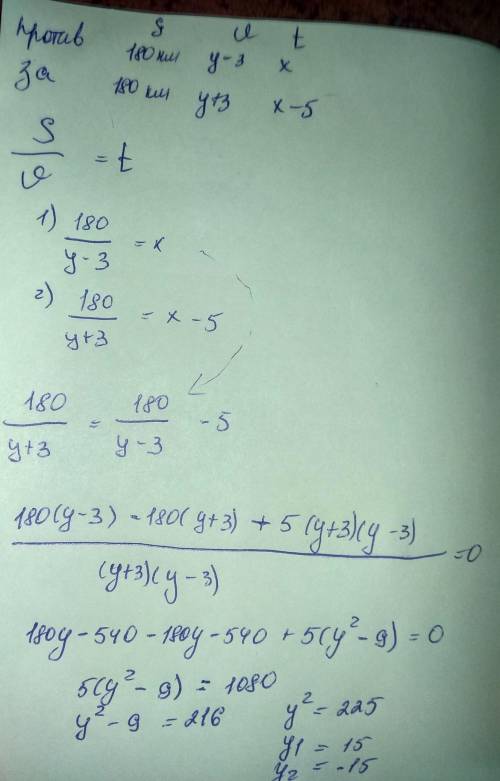 против S v t
180 км y-3 x
за 180 км y+3 x-5
S/v = t
1) 180/(y-3) = x
2) 180/(y+3) = x - 5
180/(y+3) = 180/(y-3) - 5
(180(y-3) - 180(y+3) + 5(y+3)(y-3))/((y+3)(y-3)) = 0
180y - 540 - 180y - 540 + 5(y² - 9) = 0
5(y² - 9) = 1080
y² - 9 = 216
y² = 225
y1 = 15
y2 = -15